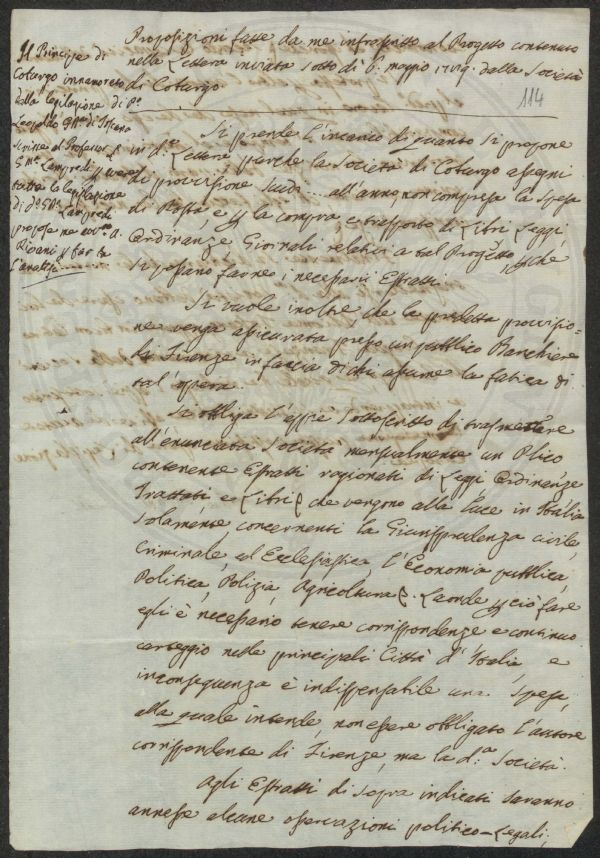 114
Proposizioni fatte da me infrascritto al Progetto contenuto
nella Lettera inviata sotto di 6. maggio dalla Società
di Coburgo.
Il Principe di
Coburgo innamorato
della legislazione di P.º
Leopoldo G.D. di Toscana
scrisse al Professor
Lampredi p avere
tutta la legislazione
di d.º Lampredi
propose me
Rivani p far
l'analisi
Si prende l'incarico di quanto si propone
in d.ª Lettera purche la Società di Coburgo assegni
di provisione Scudi ... all'anno, non compresa la spesa
di Posta, e p la compra, e trasporto di Libri Leggi,
Ordinanze Giornali relativi a tal Progetto, p che
si possano fare i necessarii Estratti.
Si vuole inoltre che la predetta provisio-
ne venga assicurata presso un pubblico Banchiere
di Firenze in faccia di chi assume la fatica di
tal'opera.
Si obliga l'essere sottoscritto di trasmettere
all'enunciata Società mensualmente un Plico
contenente Estratti ragionati di Leggi Ordinanze
Trattati e Libri che vengono alla luce in Italia
solamente, concernenti la Giurisprudenza civile,
Criminale, ed Ecclesiastica, l'Economia pubblica,
Politica, Polizia, Agricoltura. Laonde p ciò fare
egli è necessario tenere corrispondenze e continuo
carteggio nelle principali Città d'Italia e
inconseguenza è indispensabile una spesa,
alla quale intende, non essere obbligato l'autore
corrispondente di Firenze, ma la d.ª Società.
Agli Estratti di sopra indicati saranno
annesse alcune osservazioni politico-Legali,